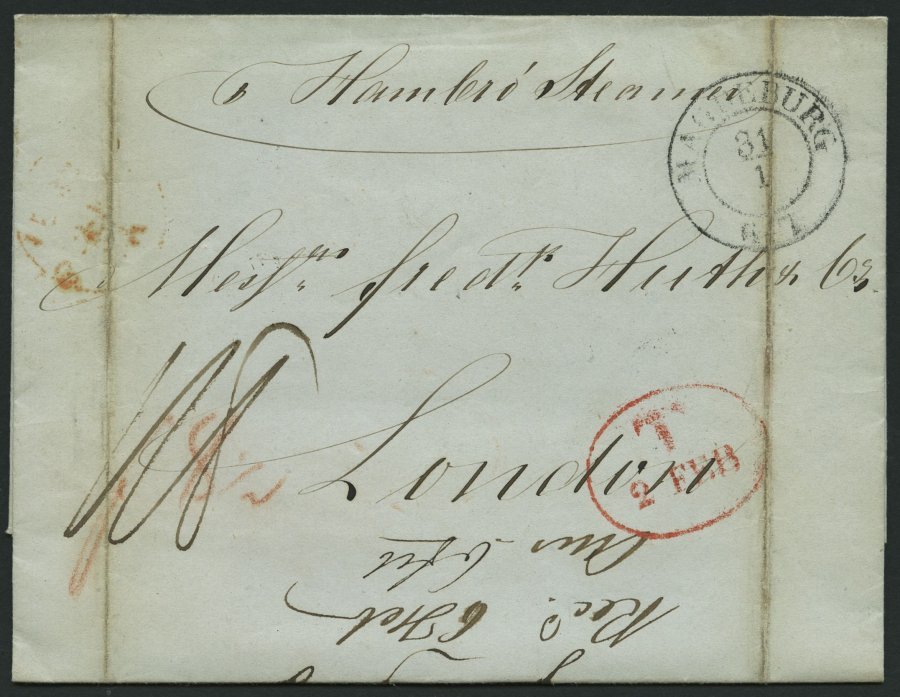 p Hambro' Steamer
MAGDEBURG
31
1
Messrs. Fredk. Huth & Co.
London
T
2 FEB
8½
Recd. 6 Feb
Ans 6 Feb